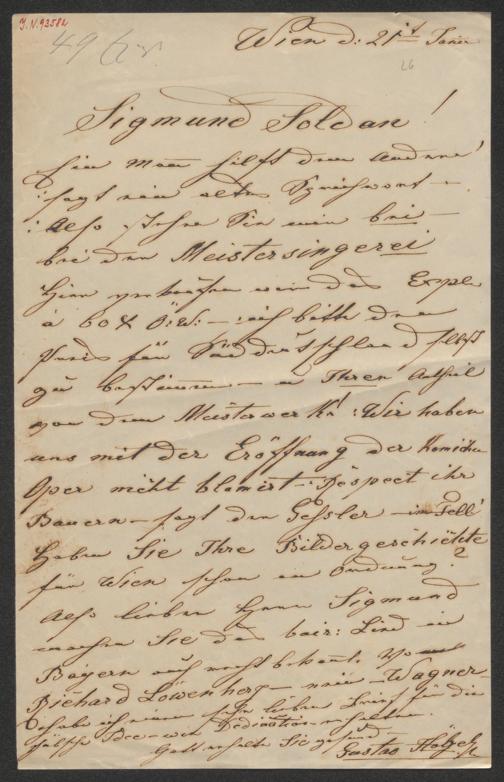 J.N. 93582
49
Wien d: 21t Jäner
26
Sigmund Soldan!
Ein Mann hilft dem Andern!
sagt ein altes Sprichwort —
Also stehen Sie mir bei —
bei der Meistersingerei
Hier verkaufen wir das Expl.
à 60 x Ö:W: — ich bitte den
Preis für Süddeutschland selbst
zu bestimmen — u Ihren Antheil
von dem Meisterwerk! Wir haben
uns mit der Eröffnung der Komischen
Oper nicht blamirt — Respect ihr
Bauern — sagt der Gessler — im Tell!
Haben Sie Ihre Bildergeschichte
für Wien schon in Ordnung?
Also lieber Herr Sigmund
machen Sie das bair: Lied in
Bayern auch recht bekannt. Von
Richard Löwenherz — nein — Wagner —
habe ich einen sehr lieben Brief für die
hübsche Idee — der Dedication erhalten.
Gott erhalte Sie gesund
Gustav Hölzel